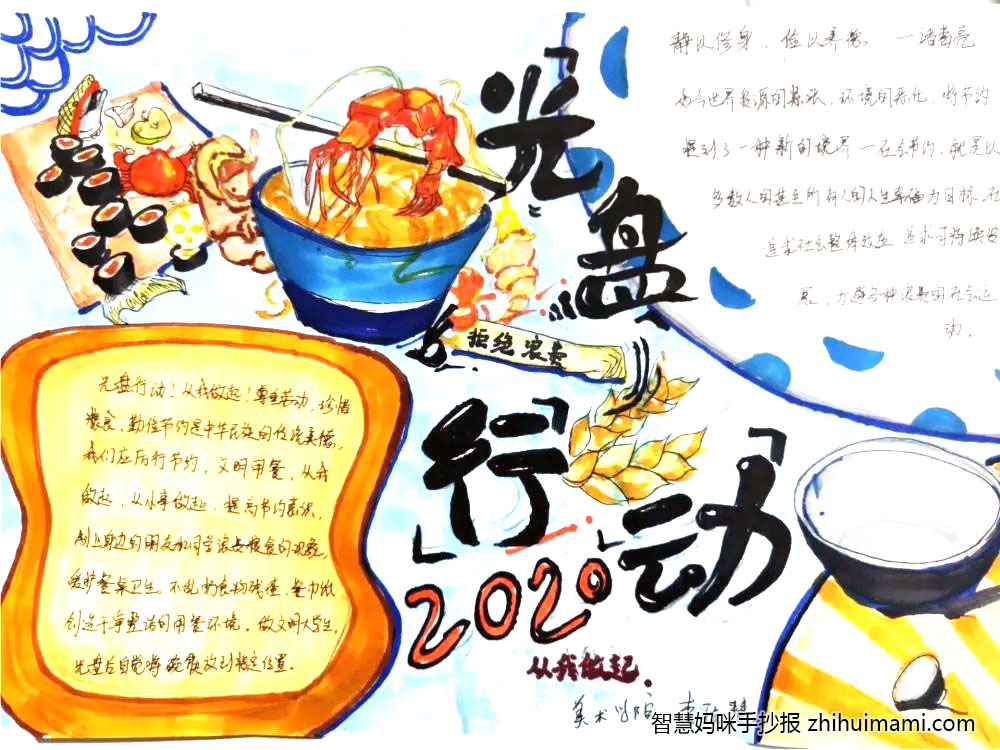 光盘
行动
拒绝浪费
2020
从我做起.
静以修身,俭以养德 —诸葛亮
如今世界资源的紧张,环境的恶化,将节约
提到了一种新的境界—社会节约,就是以
多数人的甚至所有人的人生幸福为目标,
追求社会整体效益 追求可持续发
展,力避各种浪费的社会运
动。
光盘行动!从我做起!尊重劳动,珍惜
粮食,勤俭节约是中华民族的传统美德,
我们应厉行节约,文明用餐,从我
做起,从小事做起,提高节约意识,
制止身边的朋友和同学浪费粮食的现象,
爱护餐桌卫生,不乱扔食物残渣,
创造干净整洁的用餐环境。做文明大学生,
光盘后自觉将碗筷放到指定位置.
美术学院 李
智慧妈咪手抄报 zhihuimami.com